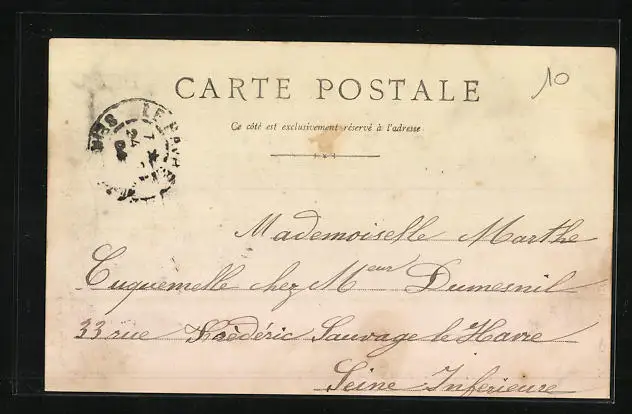 10
CARTE POSTALE
Ce côté est exclusivement réservé à l'adresse
LE HAVRE
24
04
Mademoiselle Marthe
Cuquemelle chez Meur Dumesnil
33 rue Frédéric Sauvage le Havre
Seine Inferieure